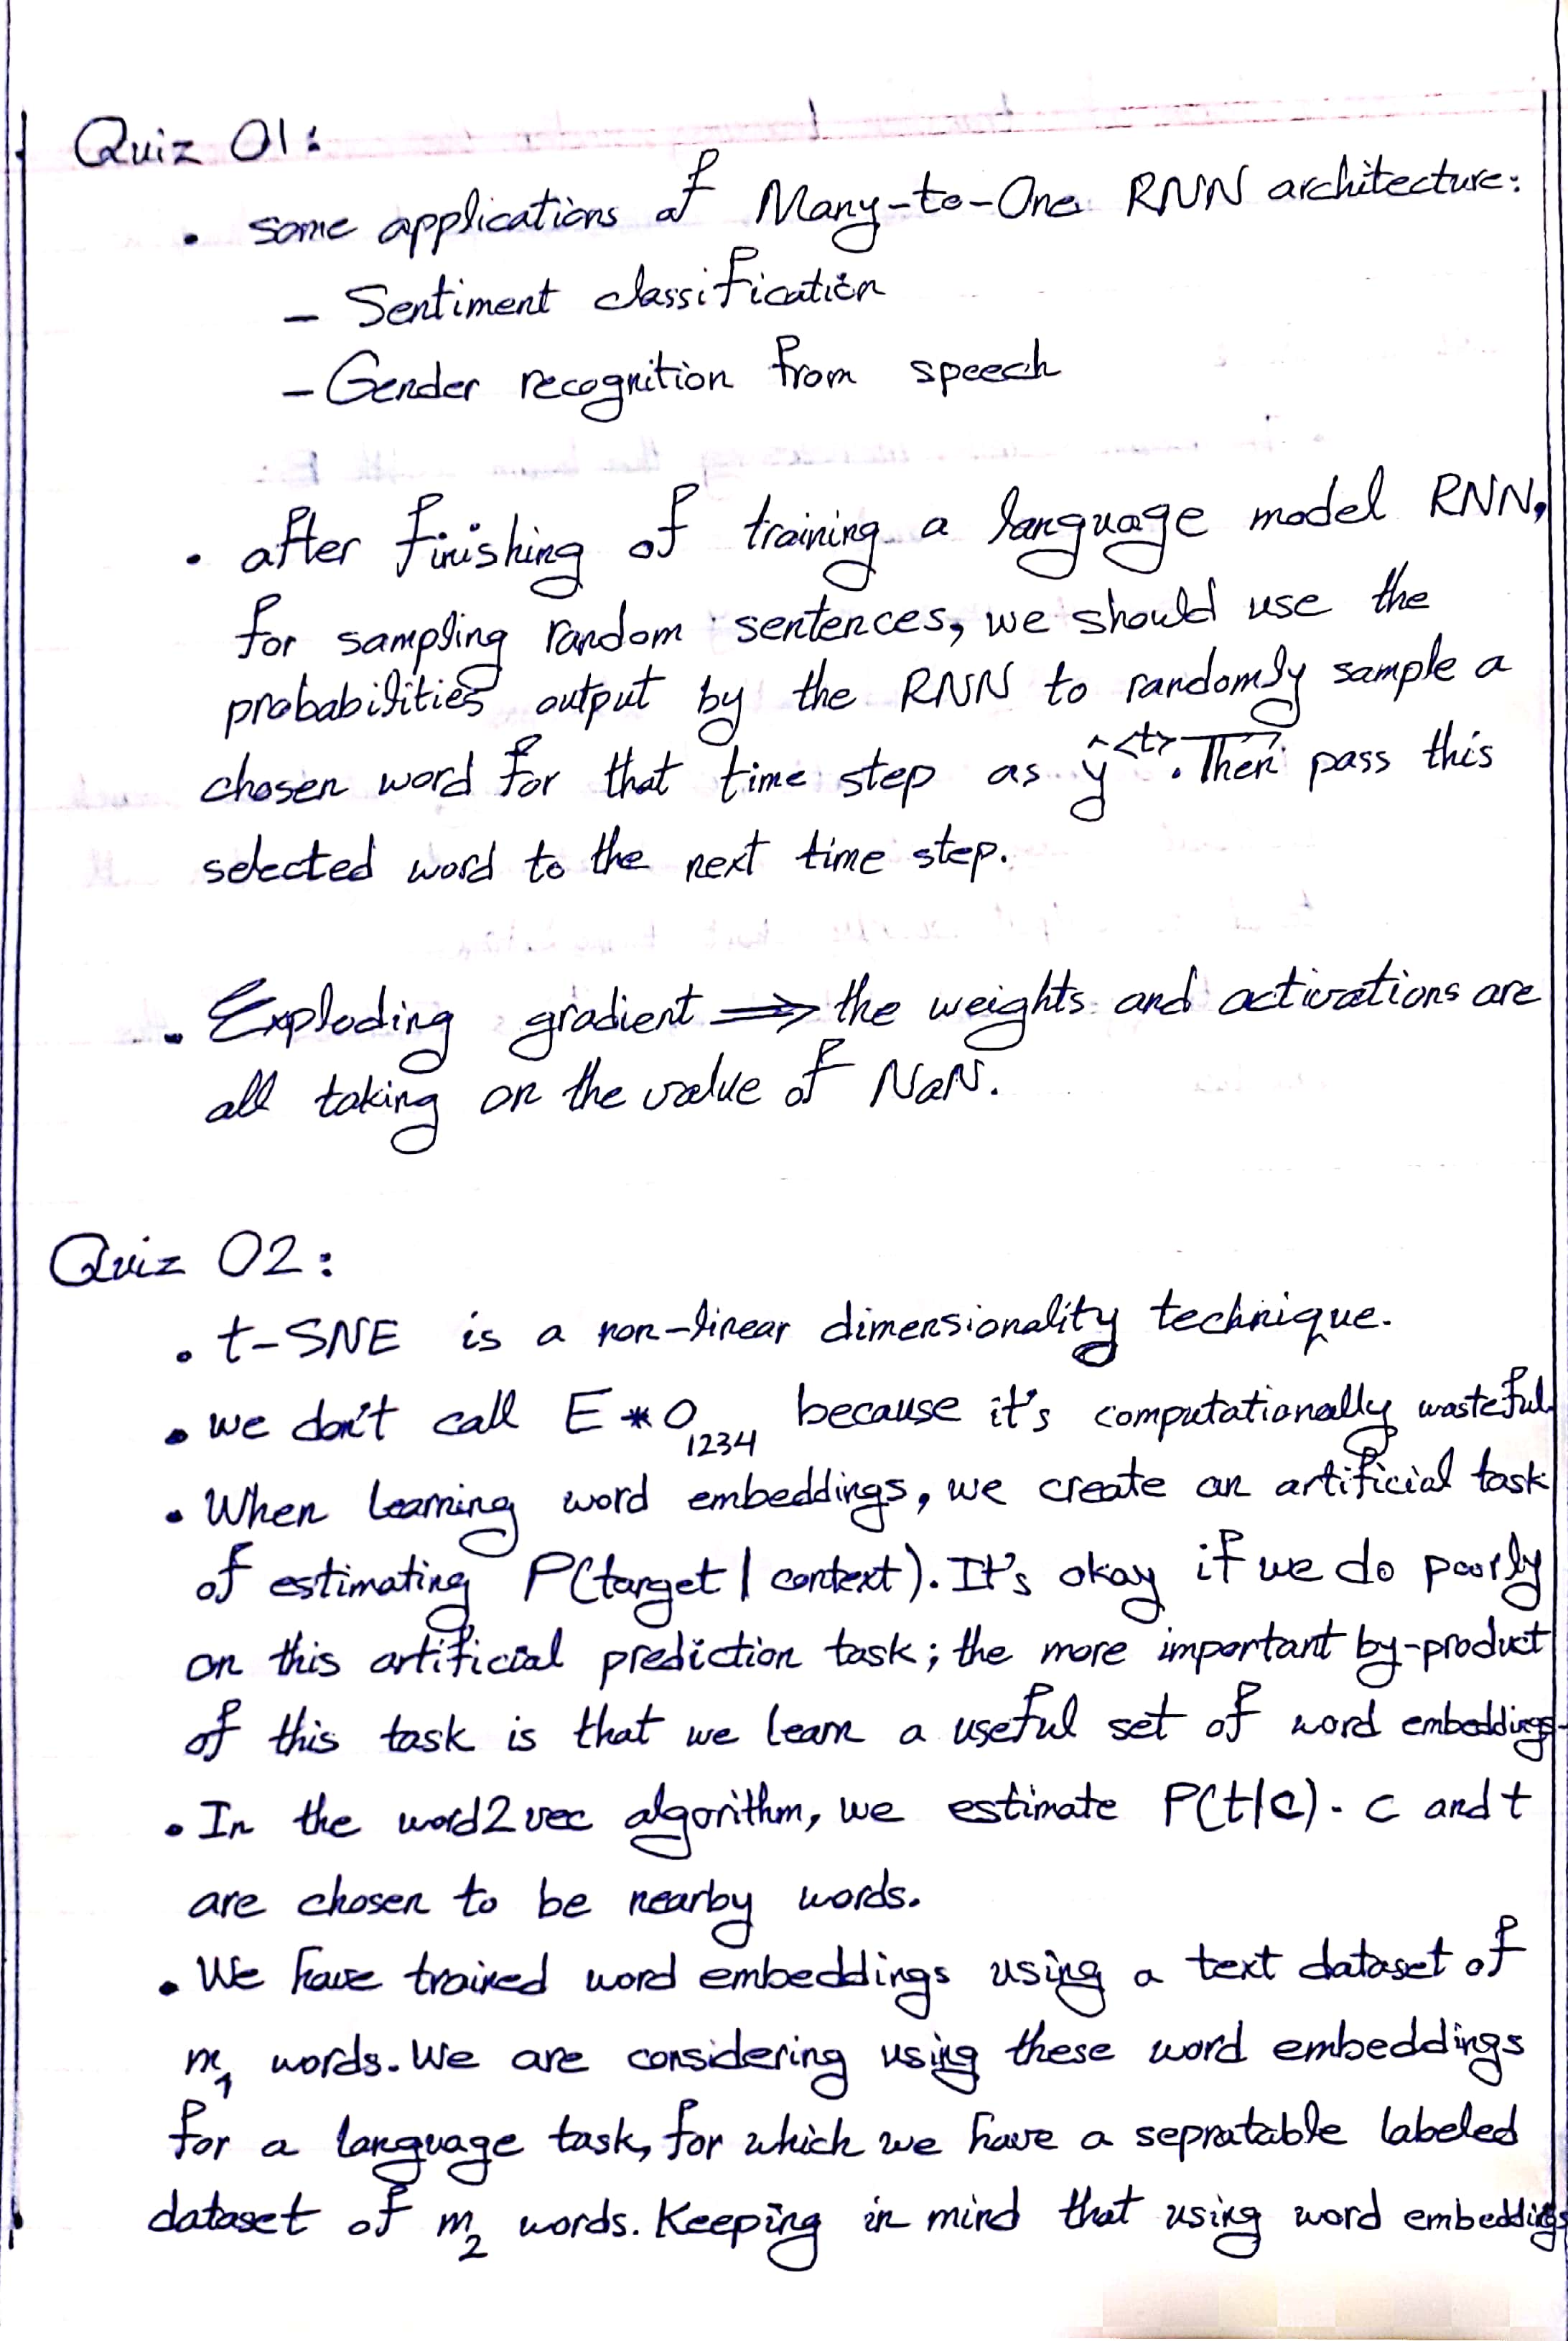 Quiz 01:
• some applications of Many-to-One RNN architecture:
– Sentiment classification
– Gender recognition from speech
• after finishing of training a language model RNN,
for sampling random sentences, we should use the
probabilities output by the RNN to randomly sample a
chosen word for that time step as ŷ<t>. Then pass this
selected word to the next time step.
• Exploding gradient ⟹ the weights and activations are
all taking on the value of NaN.
Quiz 02:
• t-SNE is a non-linear dimensionality technique.
• we don't call E * O1234 because it's computationally wasteful.
• When learning word embeddings, we create an artificial task
of estimating P(target | context). It's okay if we do poorly
on this artificial prediction task; the more important by-product
of this task is that we learn a useful set of word embeddings.
• In the word2vec algorithm, we estimate P(t|c). c and t
are chosen to be nearby words.
• We have trained word embeddings using a text dataset of
m1 words. We are considering using these word embeddings
for a language task, for which we have a sepratable labeled
dataset of m2 words. Keeping in mind that using word embeddings